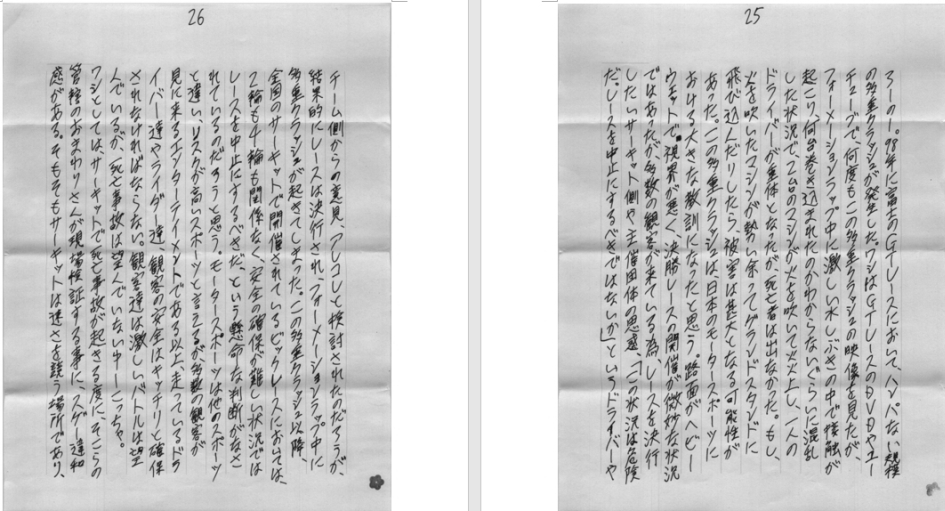 25
ろーの一。98年に富士のGTレースにおいて、ハンパない規模
の多重クラッシュが発生した。ワシはGTレースのDVDやユー
チューブで、何度もこの多重クラッシュの映像を見たが、
フォーメーションラップ中に激しい水しぶきの中で接触が
起こり、何台巻き込まれたのかわからないぐらいに混乱
した状況で、2台のマシンが火を吹いて火上し、一人の
ドライバーが重体となったが、死亡者は出なかった。もし、
火を吹いたマシンが勢い余ってグランドスタンドに
飛び込んだりしたら、被害は甚大となる可能性が
あった。この多重クラッシュは、日本のモータースポーツに
おける大きな教訓になったと思う。路面がヘビー
ウェットで視界が悪く、決勝レースの開催が微妙な状況
ではあったが、多数の観客が来ている為、レースを決行
したいサーキット側や主催団体の思惑、「この状況は危険
だ。レースを中止にするべきではないか」というドライバーや
26
チーム側からの意見、アレコレと検討されたのだろうが、
結果的にレースは決行され、フォーメーションラップ中に
多重クラッシュが起きてしまった。この多重クラッシュ以降、
全国のサーキットで開催されているビックレースにおいては、
2輪も4輪も関係なく、安全の確保が難しい状況では
レースを中止にするべきだ、という懸命な判断がなさ
れているのだろうと思う。モータースポーツは他のスポーツ
と違い、リスクが高いスポーツと言えるが、多数の観客が
見に来るエンターテイメントである以上、走っているドラ
イバー達やライダー達、観客の安全はキッチリと確保
されなければならない。観客達は激しいバトルは望
んでいるが、死亡事故は望んでいないサーこっちゃ。
ワシとしては、サーキットで死亡事故が起きる度に、そこらの
管轄のおまわりさんが現場検証する事に、スゲー違和
感がある。そもそもサーキットは速さを競う場所であり、